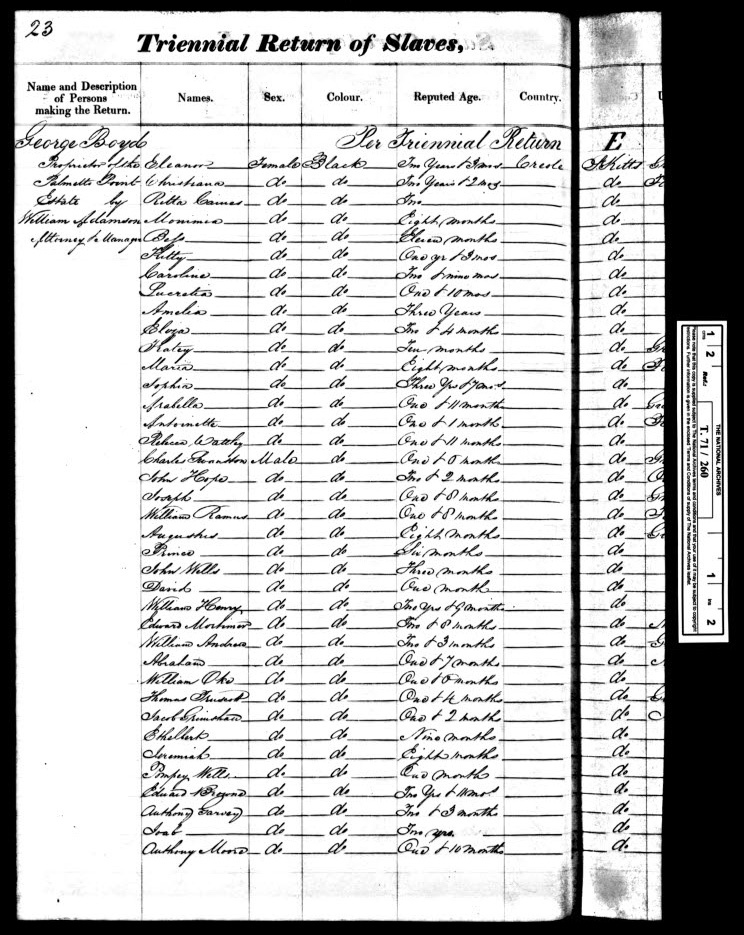 23
Triennial Return of Slaves,
Name and Description of Persons making the Return. Names. Sex. Colour. Reputed Age. Country.
George Boyd Per Triennial Return E
Proprietor of the Eleanor Female Black Two Years & 3 mos Creole St Kitts
Palmetto Point Christiana do do Two Years & 2 mos do
Estate by Ritta Caines do do Two do
William Adamson Monimia do do Eight months do
Attorney & Manager Bess do do Eleven months do
Kitty do do One yr & 3 mos do
Caroline do do Two & nine mos do
Lucretia do do One & 10 mos do
Amelia do do Three Years do
Eloza do do Two & 4 months do
do do Ten months do
Maria do do Eight months do
Sophia do do Three Yrs & 7 mos do
Arabella do do One & 11 months do
Antoinette do do One & 1 month do
do do One & 11 months do
Charles Male do One & months do
John Hope do do Two & 2 months do
Joseph do do One & 8 months do
William Ramus do do One & 8 months do
Augustus do do Eight months do
Prince do do Six months do
John Wells do do Three months do
David do do One month do
William Henry do do Two Yrs & 9 months do
Edward Mortimor do do Two & 8 months do
William Andrew do do Two & 3 months do
Abraham do do One & 7 months do
William Oke do do One & months do
Thomas do do One & 4 months do
Jacob Grimshaw do do One & 2 months do
Ethelbert do do Nine months do
Jeremiah do do Eight months do
Pompey Wells do do One month do
Edward Browne do do Two Yrs & 11 mos do
Anthony Garvey do do Two & 3 months do
Joab do do Two yrs do
Anthony Moore do do One & 10 months do
THE NATIONAL ARCHIVES
Ref.: T. 71 / 260
cms 1 2
ins 1 2
Please note that this copy is supplied subject to The National Archives terms and conditions and that your use of it may be subject to copyright restrictions. Further information is given in the enclosed Terms and Conditions of supply of The National Archives leaflet.